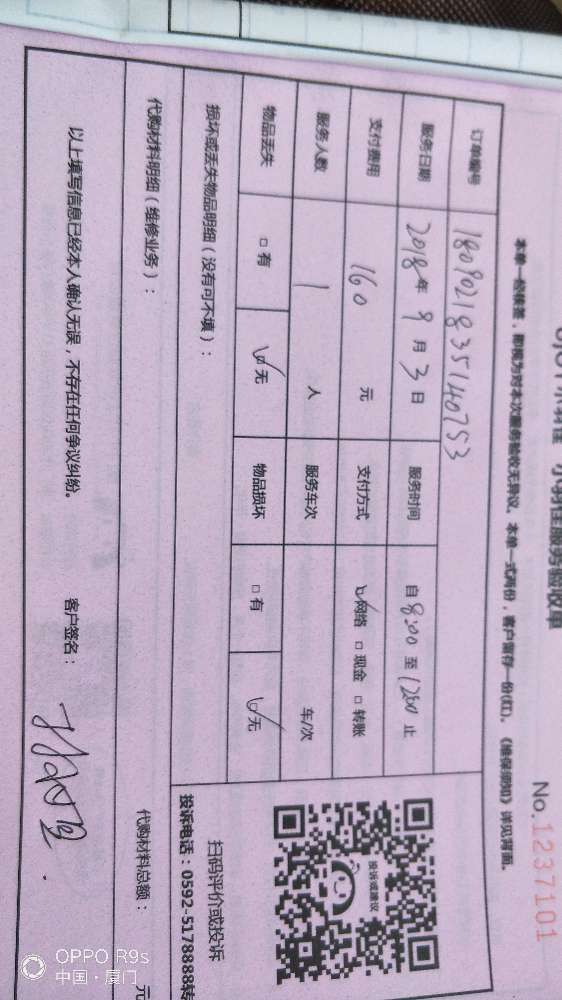 小羽佳服务验收单
No.1237101
本单一经接签，即视为对本次服务验收无异议。本单一式两份，客户留存一份(红)。《维保须知》详见背面。
订单编号 1809021835140753
服务日期 2018年9月3日 服务时间 自8:00至1200止
支付费用 160元 支付方式 ☑网络 □现金 □转账
服务人数 1人 服务车次 车/次
物品丢失 □有 ☑无 物品损坏 □有 ☑无
投诉或建议
扫码评价或投诉
投诉电话：0592-5178888转
损坏或丢失物品明细（没有可不填）：
代购材料明细（维修业务）： 代购材料总额： 元
以上填写信息已经本人确认无误，不存在任何争议纠纷。 客户签名：
OPPO R9s
中国·厦门